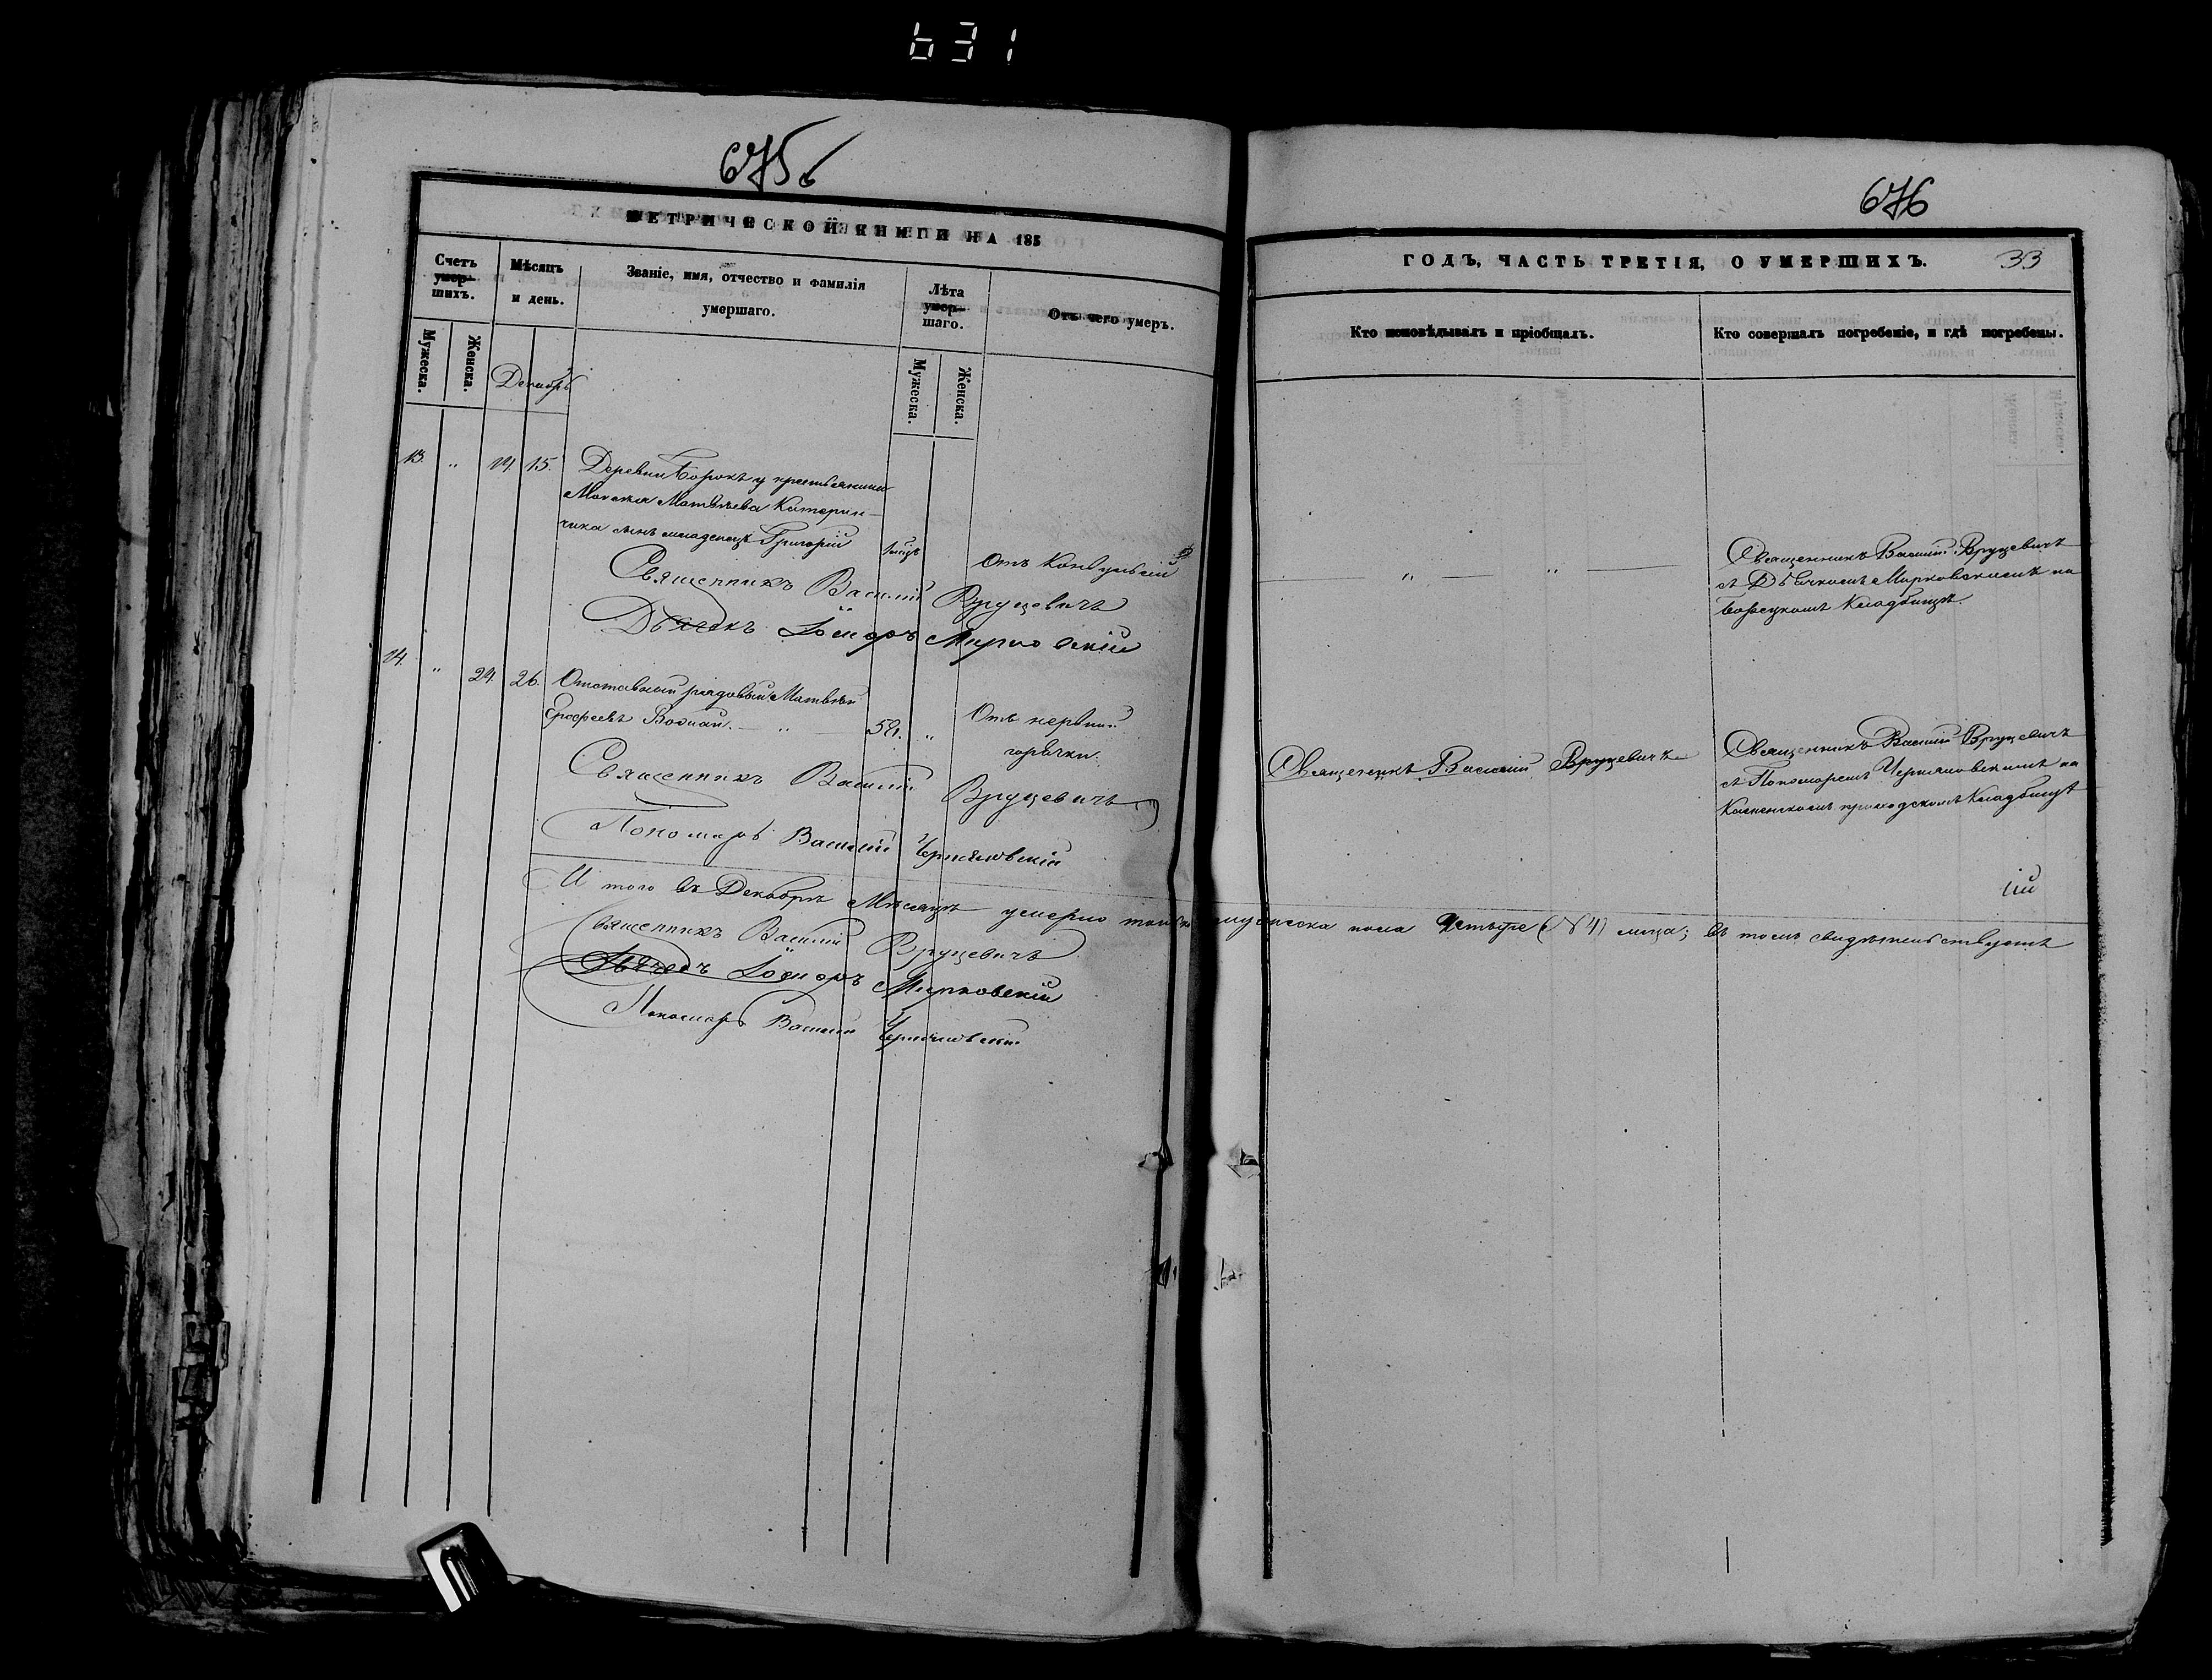 631
675
676
МЕТРИЧЕСКОЙ КНИГИ НА 185
ГОДЪ, ЧАСТЬ ТРЕТІЯ, О УМЕРШИХЪ.
33
Счетъ умер-шихъ.
Мѣсяцъ и день.
Званіе, имя, отчество и фамилія умершаго.
Лѣта умер-шаго.
Отъ чего умеръ.
Кто исповѣдывалъ и пріобщалъ.
Кто совершалъ погребеніе, и гдѣ погребены.
Мужеска.
Женска.
Декабрь
Мужеска.
Женска.
13. „ 14 15. Деревни Борокъ у крестьянина
Моисея Матвѣева Катерин-
чика сынъ младенецъ Григорій
Отъ Конвульсій
Священникъ Василій Вруцевичъ
съ Дьячкомъ Мирковскимъ на
Борецкомъ Кладбищѣ.
Священникъ Василій Вруцевичъ
Дьячекъ Мирковскій
14. „ 24. 26. Отставный рядовый Матвѣй
Ерофеевъ 58. „
Отъ нервной
горячки.
Священникъ Василій Вруцевичъ
Священникъ Василій Вруцевичъ
съ Пономаремъ Черняковскимъ на
приходскомъ Кладбищѣ
Священникъ Василій Вруцевичъ
Пономарь Василій Черняковскій
И того въ Декабрѣ Мѣсяцѣ умерло только мужеска пола Четыре (№ 4) лица; въ томъ свидѣтельствуемъ
Священникъ Василій Вруцевичъ
Дьячекъ Мирковскій
Пономарь Василій Черняковскій